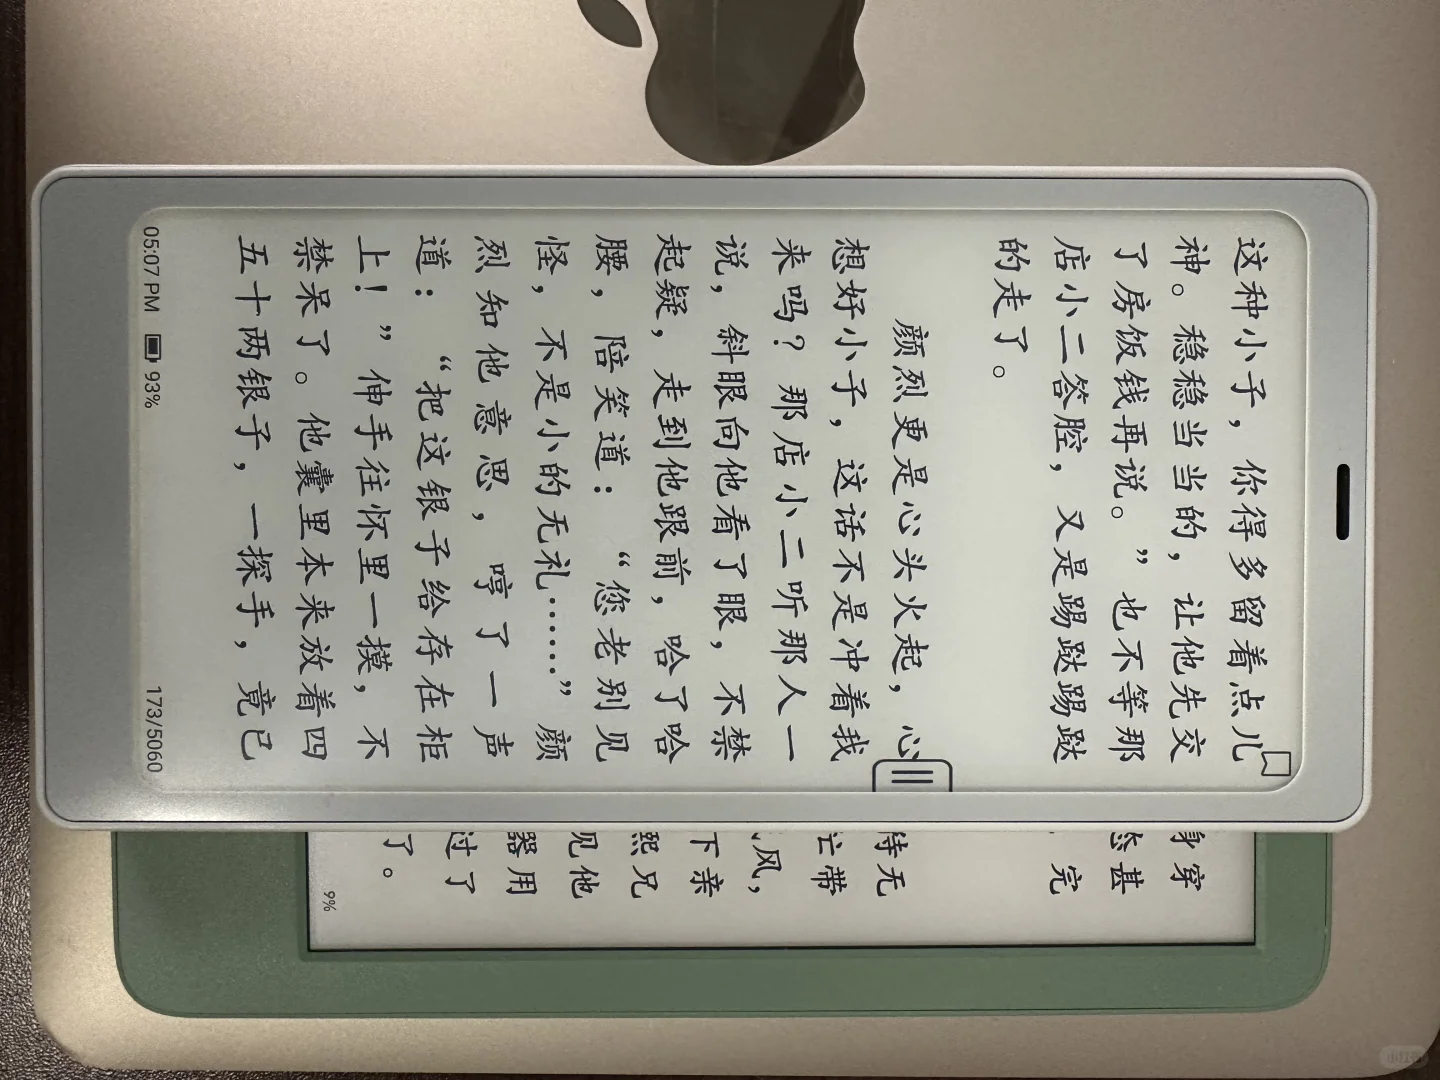 这种小子，你得多留着点儿
神。稳稳当当的，让他先交
了房饭钱再说。”也不等那
店小二答腔，又是踢跶踢跶
的走了。
颜烈更是心头火起，心
想好小子，这话不是冲着我
来吗？那店小二听那人一
说，斜眼向他看了眼，不禁
起疑，走到他跟前，哈了哈
腰，陪笑道：“您老别见
怪，不是小的无礼……”颜
烈知他意思，哼了一声
道：“把这银子给存在柜
上！”伸手往怀里一摸，不
禁呆了。他囊里本来放着四
五十两银子，一探手，竟已
05:07 PM 93% 173/5060
身穿
态甚
完
待无
亡带
风，
下亲
熙兄
见他
器用
过了
了。
9%
小红书